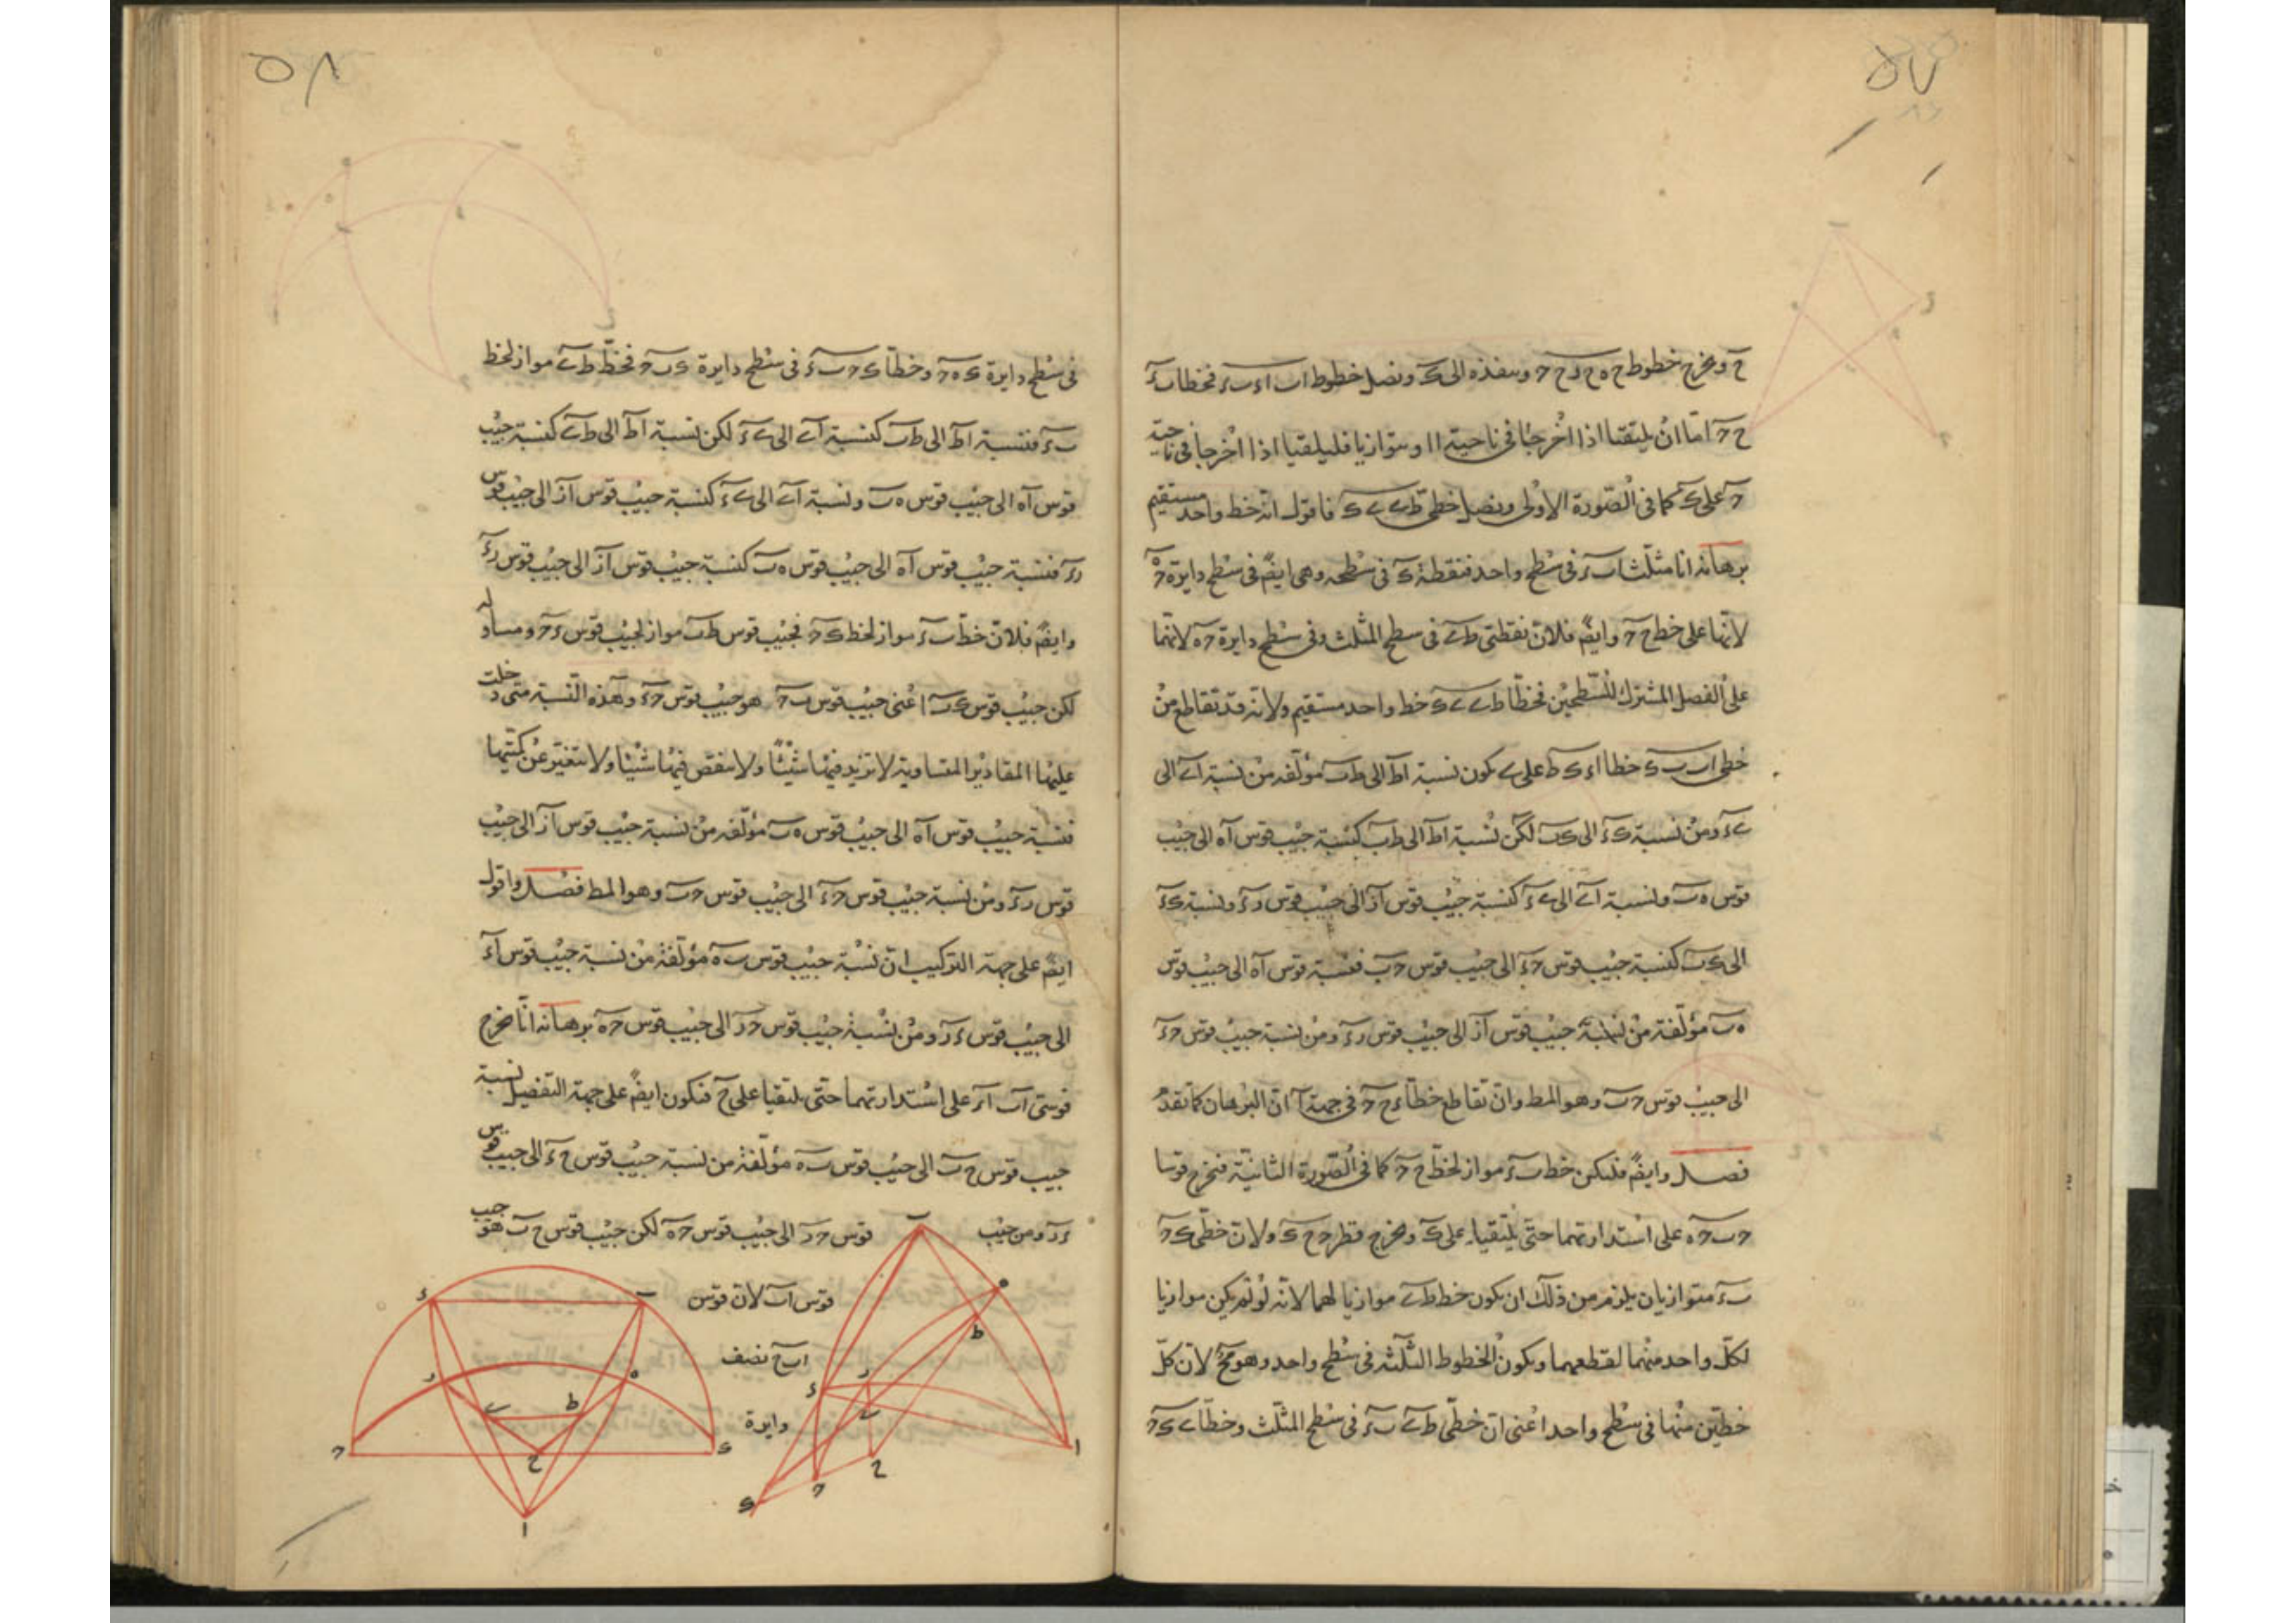 ٥٧
ح ونخرج خطوط ح ه ح ر ح ح وننفذه الى ك ونصل خطوط ا ب ا ء ب ء فخطا ب ء
ح ح اما ان يلتقيا اذا اخرجا فى ناحية ا او يتوازيا فليلتقيا اذا اخرجا فى ناحية
ح على ك كما فى الصورة الاولى ونصل خطى ط ى ى ك فاقول انه خط واحد مستقيم
برهانه ان مثلث ا ب ء فى سطح واحد فنقطة ك فى سطحه وهى ايضً فى سطح دايرة ح ه
لانها على خط ح ح وايضً فلان نقطتى ط ى فى سطح المثلث وفى سطح دايرة ح ه لانهما
على الفصل المشترك للسطحين فخطا ط ى ى ك خط واحد مستقيم ولانه قد تقاطع من
خطى ا ب ب ك خطا ا ء ك ط على ى يكون نسبة ا ط الى ط ب مؤلفه من نسبة ا ى الى
ى ء ومن نسبة ك ء الى ك ب لكن نسبة ا ط الى ط ب كنسبة جيب قوس ا ه الى جيب
قوس ه ب ونسبة ا ى الى ى ء كنسبة جيب قوس ا ر الى جيب قوس ر ء ونسبة ك ء
الى ك ب كنسبة جيب قوس ح ء الى جيب قوس ح ب فنسبة قوس ا ه الى جيب قوس
ه ب مؤلفة من نسبة جيب قوس ا ر الى جيب قوس ر ء ومن نسبة جيب قوس ح ء
الى جيب قوس ح ب وهو المط وان تقاطع خطا ء ب ح ح فى جهة ا ان البرهان كما تقدم
فصل وايضً فليكن خط ب ء مواز لخط ح ح كما فى الصورة الثانية فنخرج قوسا
ح ب ح ه على استدارتهما حتى يلتقيا على ك ونخرج قطر ح ح ك ولان خطى ك ح
ب ء متوازيان يلزم من ذلك ان يكون خط ط ى موازيا لهما لانه لو لم يكن موازيا
لكل واحد منهما لقطعهما ويكون الخطوط الثلثه فى سطح واحد وهو مح لان كل
خطين منها فى سطح واحد اعنى ان خطى ط ى ب ء فى سطح المثلث وخطا ى ك ح
٥٨
فى سطح دايرة ك ه ح وخطا ك ح ب ء فى سطح دايرة ك ب ح فخط ط ى مواز لخط
ب ء فنسبة ا ط الى ط ب كنسبة ا ى الى ى ء لكن نسبة ا ط الى ط ب كنسبة جيب
قوس ا ه الى جيب قوس ه ب ونسبة ا ى الى ى ء كنسبة جيب قوس ا ر الى جيب قوس
ر ء فنسبة جيب قوس ا ه الى جيب قوس ه ب كنسبة جيب قوس ا ر الى جيب قوس ر ء
وايضً فلان خط ب ء مواز لخط ك ح فجيب قوس ك ب مواز لجيب قوس ء ح ومساو له
لكن جيب قوس ك ب اعنى جيب قوس ب ح هو جيب قوس ح ء وهذه النسبة متى دخلت
عليها المقادير المتساوية لا تزيد فيها شيئًا ولا ينقص فيها شيئا ولا تتغير عن كميتها
فنسبة جيب قوس ا ه الى جيب قوس ه ب مؤلفه من نسبة جيب قوس ا ر الى جيب
قوس ر ء ومن نسبة جيب قوس ح ء الى جيب قوس ح ب وهو المط فصل واقول
ايضً على جهة التركيب ان نسبة جيب قوس ب ه مؤلفة من نسبة جيب قوس ا ء
الى جيب قوس ء ر ومن نسبة جيب قوس ح ر الى جيب قوس ح ه برهانه انا نخرج
قوسى ا ب ا ء على استدارتهما حتى يلتقيا على ح فيكون ايضً على جهة التفصيل نسبة
جيب قوس ح ب الى جيب قوس ب ه مؤلفة من نسبة جيب قوس ح ء الى جيب قوس
ء ر ومن جيب قوس ح ر الى جيب قوس ح ه لكن جيب قوس ح ب هو جيب
قوس ا ب لان قوس
ا ب ح نصف
دايرة